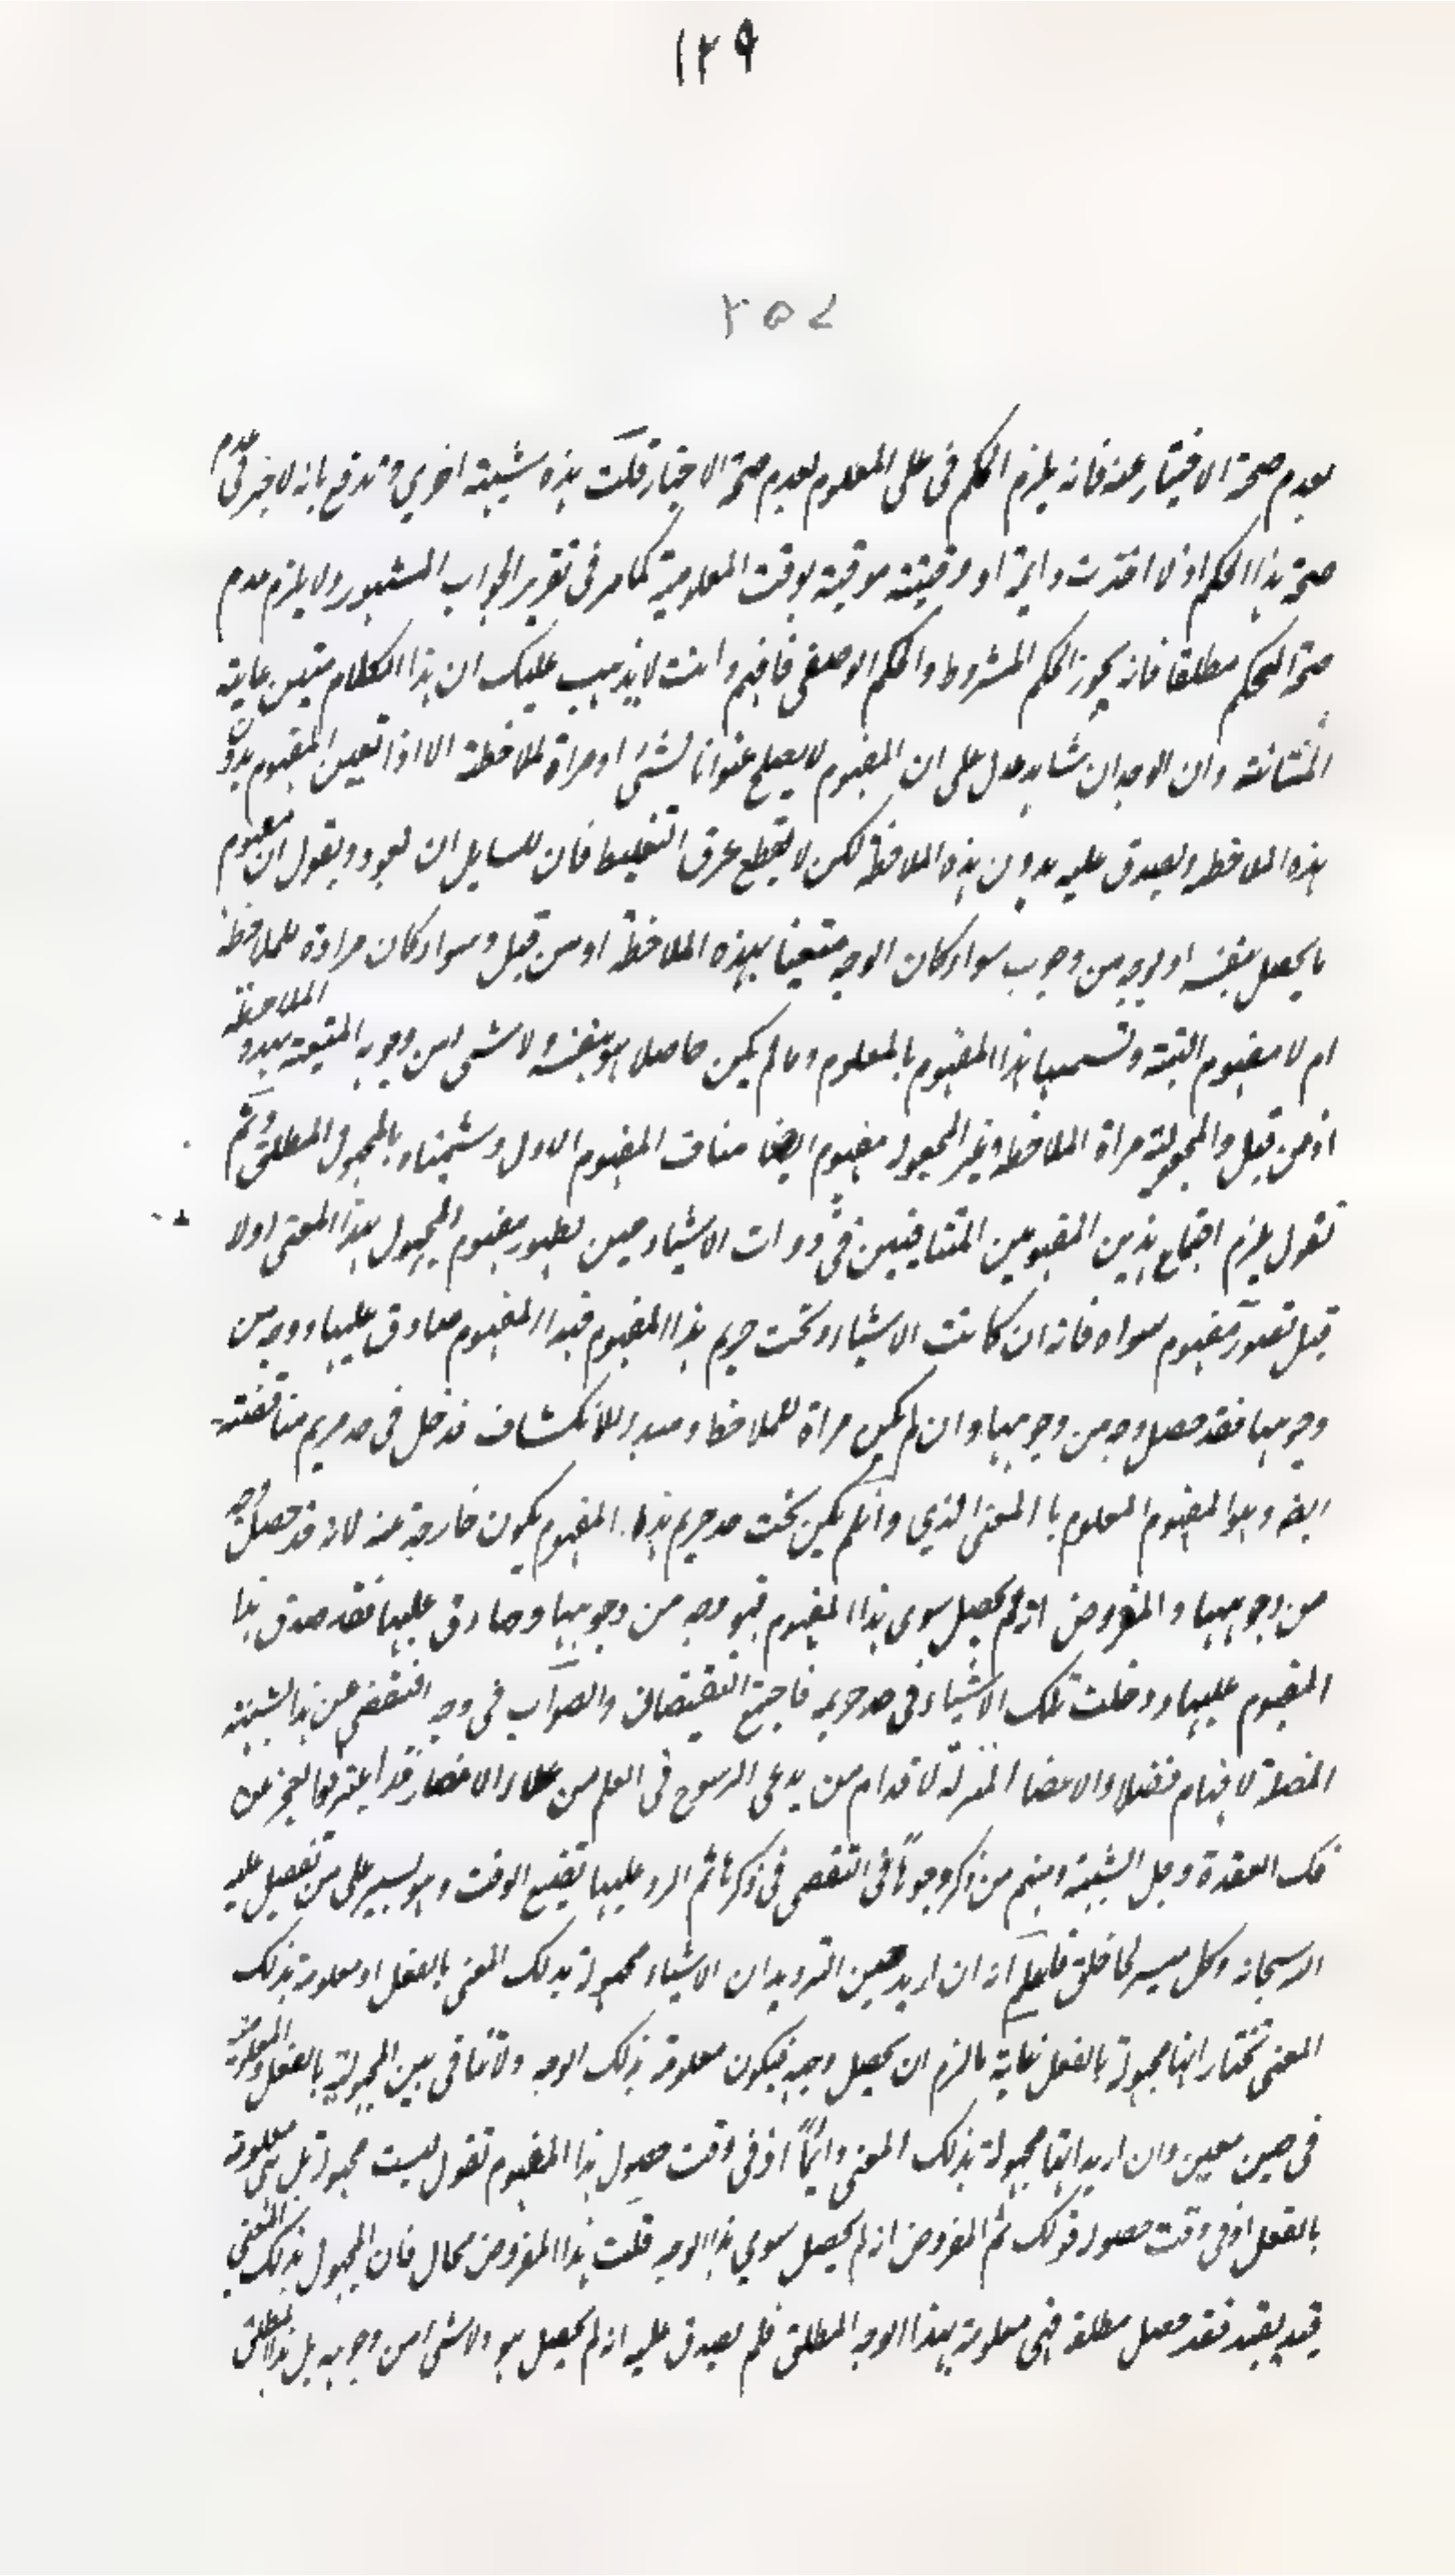 ١٢٩
٢٥٧
بعدم صحة الاختبار عنه فانه يلزم الحكم فى على المعلوم بعدم صحة الاختبار قلت هذه شبهة اخرى وتدفع بانه لا خير فى عدم
صحة هذا الحكم اذ لا اخذت دائمة او وقتية موقتة بوقت المعلومية كما مر فى تقرير الجواب المشهور ولا يلزم عدم
صحة الحكم مطلقا فانه يجوز الحكم المشروط والحكم الوصفى فافهم وانت لا يذهب عليك ان هذا الكلام متين غاية
المتانة وان الوجدان شاهد عدل على ان المفهوم لا يصلح عنوانا لشئ او مراة لملاحظة الا اذا تعين المفهوم بدون
هذه الملاحظة ويصدق عليه بدون هذه الملاحظة لكن لا يقطع عرق التغليط فان للسايل ان يعود ويقول ان مفهوم
ما يحصل بنفسه او بوجه من وجوهه سواء كان الوجه متعينا بهذه الملاحظة او من قبل وسواء كان مراة للملاحظة
ام لا مفهوم البتة ونسميها هذا المفهوم بالمعلوم وما لم يكن حاصلا هو بنفسه ولا شئ من وجوهه المتعينة بهذه الملاحظة
او من قبل والمجعولة مراة الملاحظة وغير المجعول مفهوم ايضا مناف المفهوم الاول وسميناه بالمجهول المطلق ثم
نقول يلزم اجتماع هذين المفهومين المتنافيين فى ذوات الاشياء حين تصور مفهوم المجهول بهذا المعنى اولا
قبل تصور مفهوم سواه فانه ان كانت الاشياء تحت حريم هذا المفهوم فهذا المفهوم صادق عليها ووجه من
وجوهها فقد حصل وجه من وجوهها وان لم يكن مراة للملاحظة ومبدء للانكشاف فدخل فى حد حريم مناقضته
ايضا وهو المفهوم المعلوم با المعنى الذي وان لم يكن تحت حد حريم هذا المفهوم يكون خارجة عنه لانه قد حصل وجه
من وجوهها والمفروض انه لم يحصل سوى هذا المفهوم فهو وجه من وجوهها وصادق عليها فقد صدق هذا
المفهوم عليها ودخلت تلك الاشياء فى حد حريمه فاجتمع النقيضان والصواب فى وجه التفصى عن هذا الشبهة
المضلة لافهام فضلاء الاعصار المزلة لاقدام من يدعى الرسوخ فى العلم من علماء الامصار قد اعترفوا بعجز عن
فك العقدة وحل الشبهة ومنهم من ذكر وجوها فى التفصى فى ذكرها ثم الرد عليها تضيع الوقت وهو يسير على من تفضل عليه
الله سبحانه وكل ميسر لما خلق فليعلم انه ان اريد حين الترديد ان الاشياء مجهولة بذلك المعنى بالفعل او معلومة بذلك
المعنى نختار انها مجهولة بالفعل غاية ما لزم ان يحصل وجهه فيكون معلومة بذلك الوجه ولا تنافى بين المجهولية بالفعل والمعلومية
فى حين معين وان اريد انها مجهولة بذلك المعنى دائما او فى وقت حصول هذا المفهوم نقول ليست مجهولة بل هى معلومة
بالفعل او فى وقت حصوله قولك ثم المفروض انه لم يحصل سوى هذا الوجه قلت هذا المفروض محال فان المجهول بذلك المعنى
قيد بقيد فقد حصل مطلقه فهى معلومة بهذا الوجه المطلق فلم يصدق عليه انه لم يحصل هو ولا شئ من وجوهه بل هذا المطلق